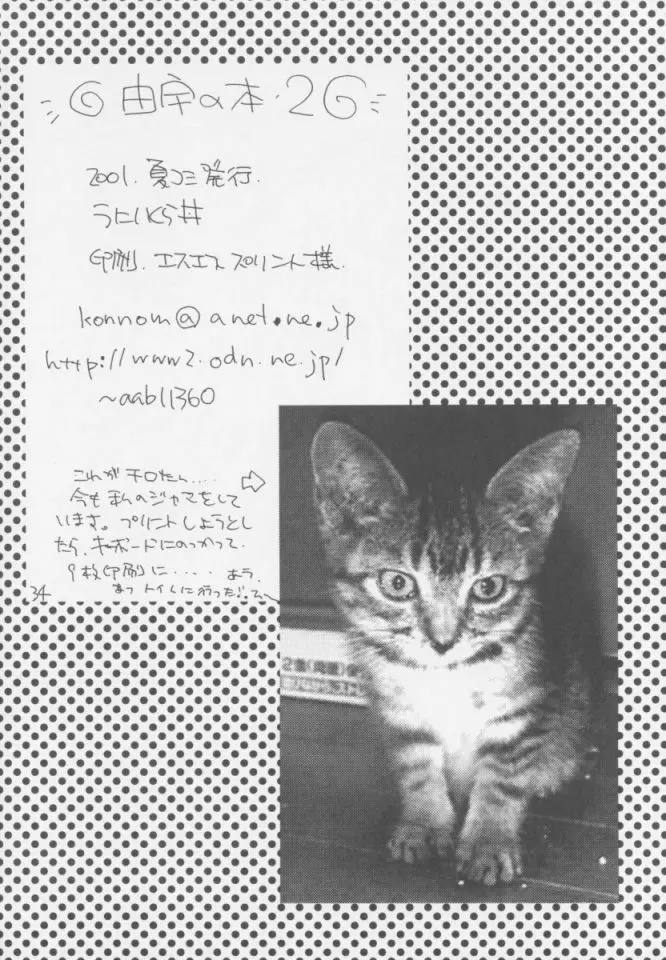 ◎由宇の本・2◎
2001.夏コミ発行.
うにいくら丼
印刷.エスエスプリント様.
konnom@anet.ne.jp
http://www2.odn.ne.jp/
~aab11360
これがチロたん....⇨
今もまんがのジャマをして
います。プリントしようとし
たら、キーボードにのっかって.
9枚印刷に....
あっトイレに行った
34